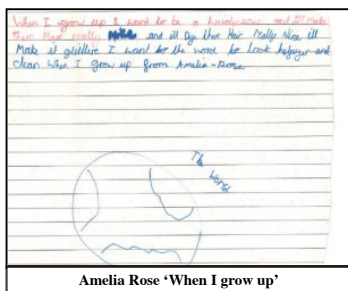 When I grow up I want to be a hairdresser and I'll Make
there Hair really and ill Dye there Hair Really Nice ill
Make it glittery I want for the world for look happyer and
clean when I grow up from Amelia-Rose
The World
Amelia Rose ‘When I grow up’